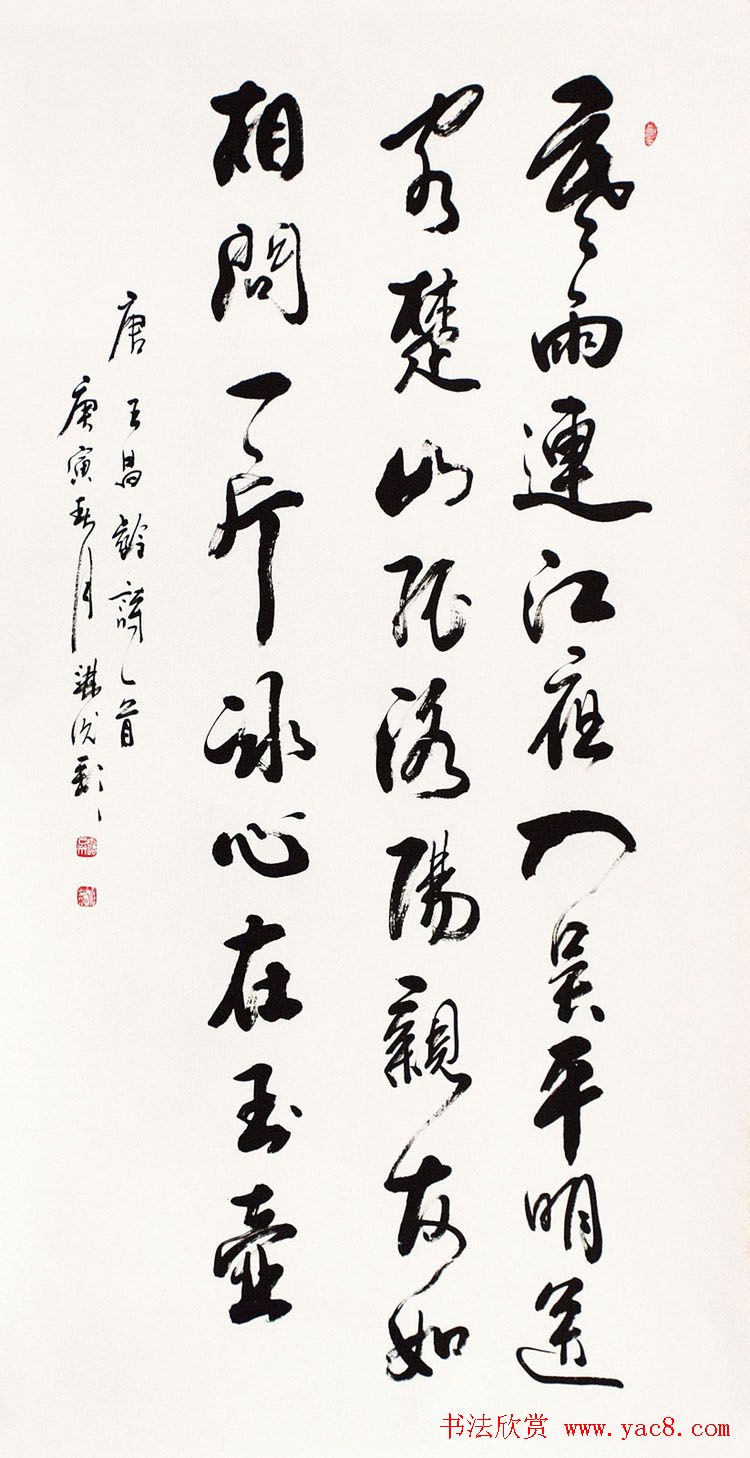 寒雨連江夜入吳平明送
客楚山孤洛陽親友如
相問一片冰心在玉壺
唐王昌齡詩乙首
庚寅春月
书法欣赏 www.yac8.com